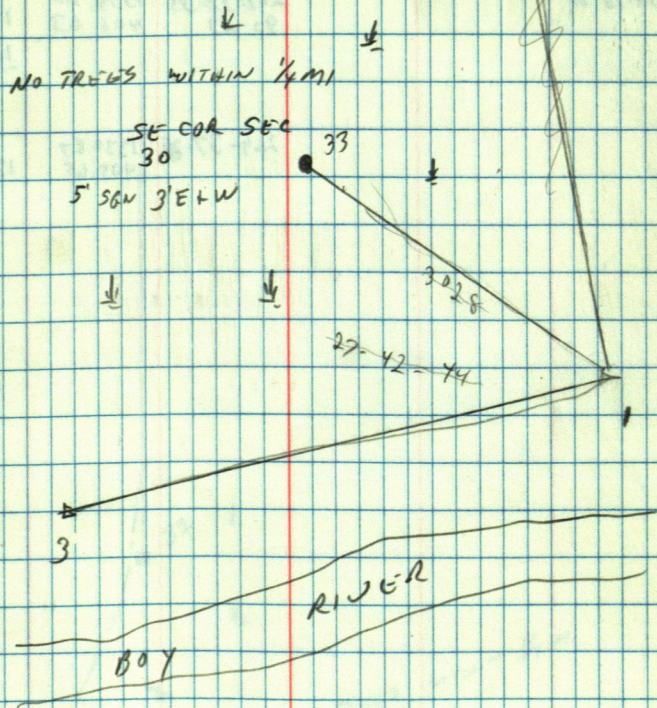 NO TREES WITHIN 1/4 MI
SE COR SEC
30
33
5' SGN 3' E+W
3028
27-42-44
1
3
RIVER
BOY